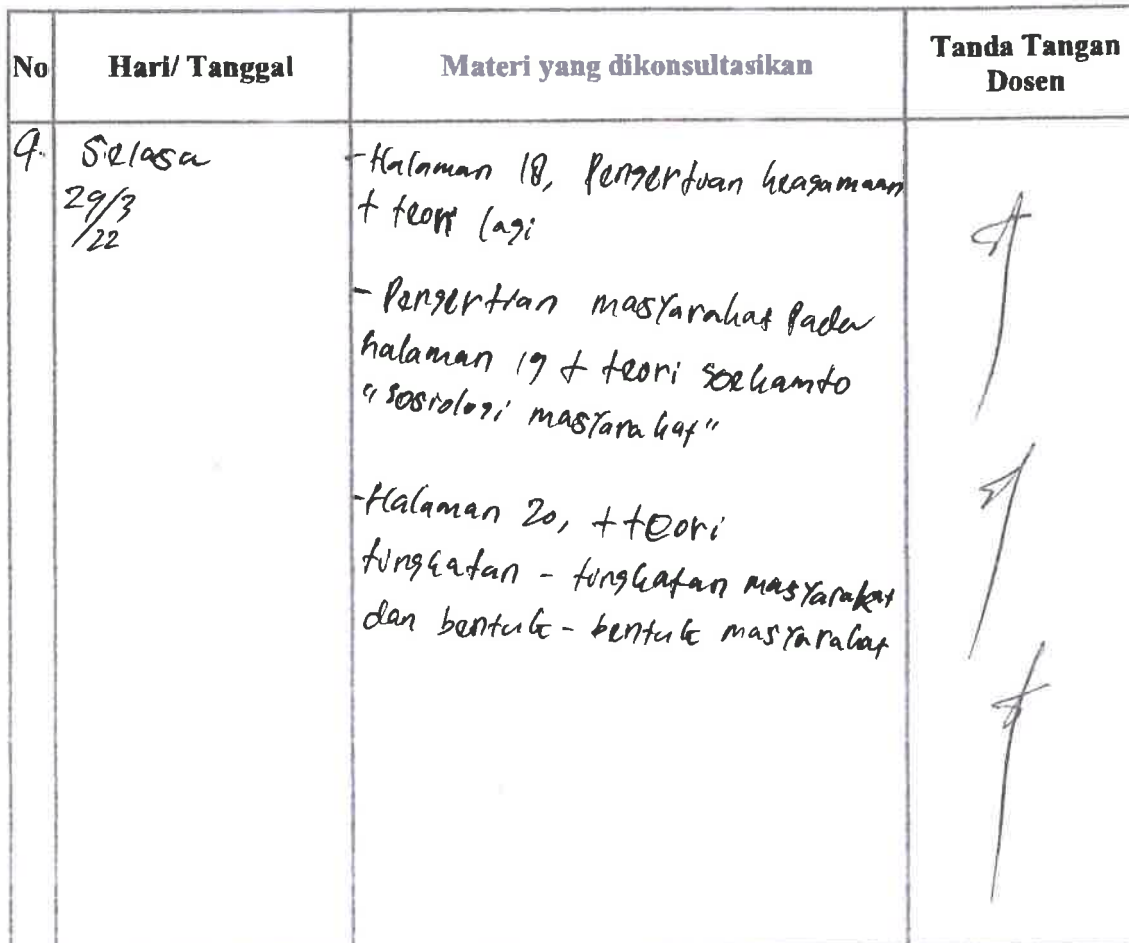 No Hari/ Tanggal Materi yang dikonsultasikan Tanda Tangan
Dosen
9. Selasa
29/3
/22
- Halaman 18, Pengertian keagamaan
+ teori lagi
- Pengertian masyarakat Pada
halaman 19 + teori soekamto
"sosiologi masyarakat"
- Halaman 20, + teori
tingkatan - tingkatan masyarakat
dan bentuk - bentuk masyarakat